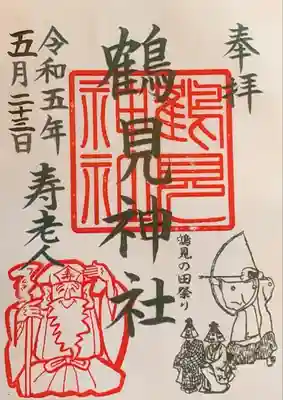 奉拝
鶴見神社
鶴見神社
鶴見の田祭り
令和五年
五月二十三日
寿老人